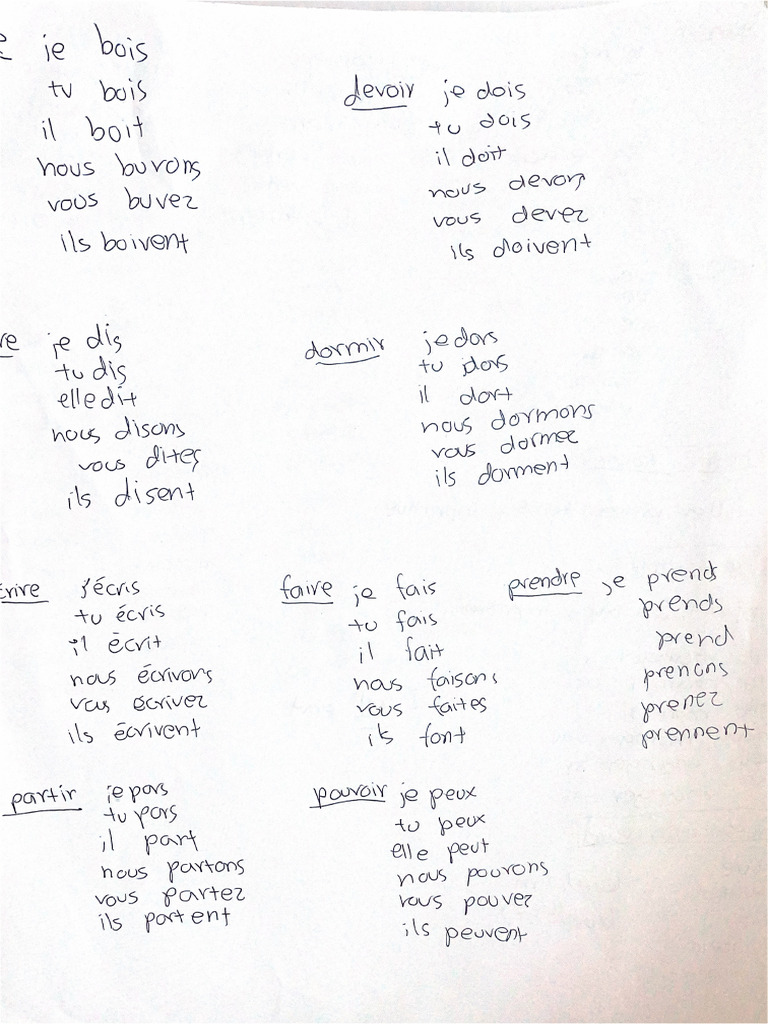 e je bois
tu bois
il boit
nous buvons
vous buvez
ils boivent
devoir je dois
tu dois
il doit
nous devons
vous devez
ils doivent
re je dis
tu dis
elle dit
nous disons
vous dites
ils disent
dormir je dors
tu dors
il dort
nous dormons
vous dormez
ils dorment
crire j'écris
tu écris
il écrit
nous écrivons
vous écrivez
ils écrivent
faire je fais
tu fais
il fait
nous faisons
vous faites
ils font
prendre je prends
prends
prend
prenons
prenez
prennent
partir je pars
tu pars
il part
nous partons
vous partez
ils partent
pouvoir je peux
tu peux
elle peut
nous pouvons
vous pouvez
ils peuvent